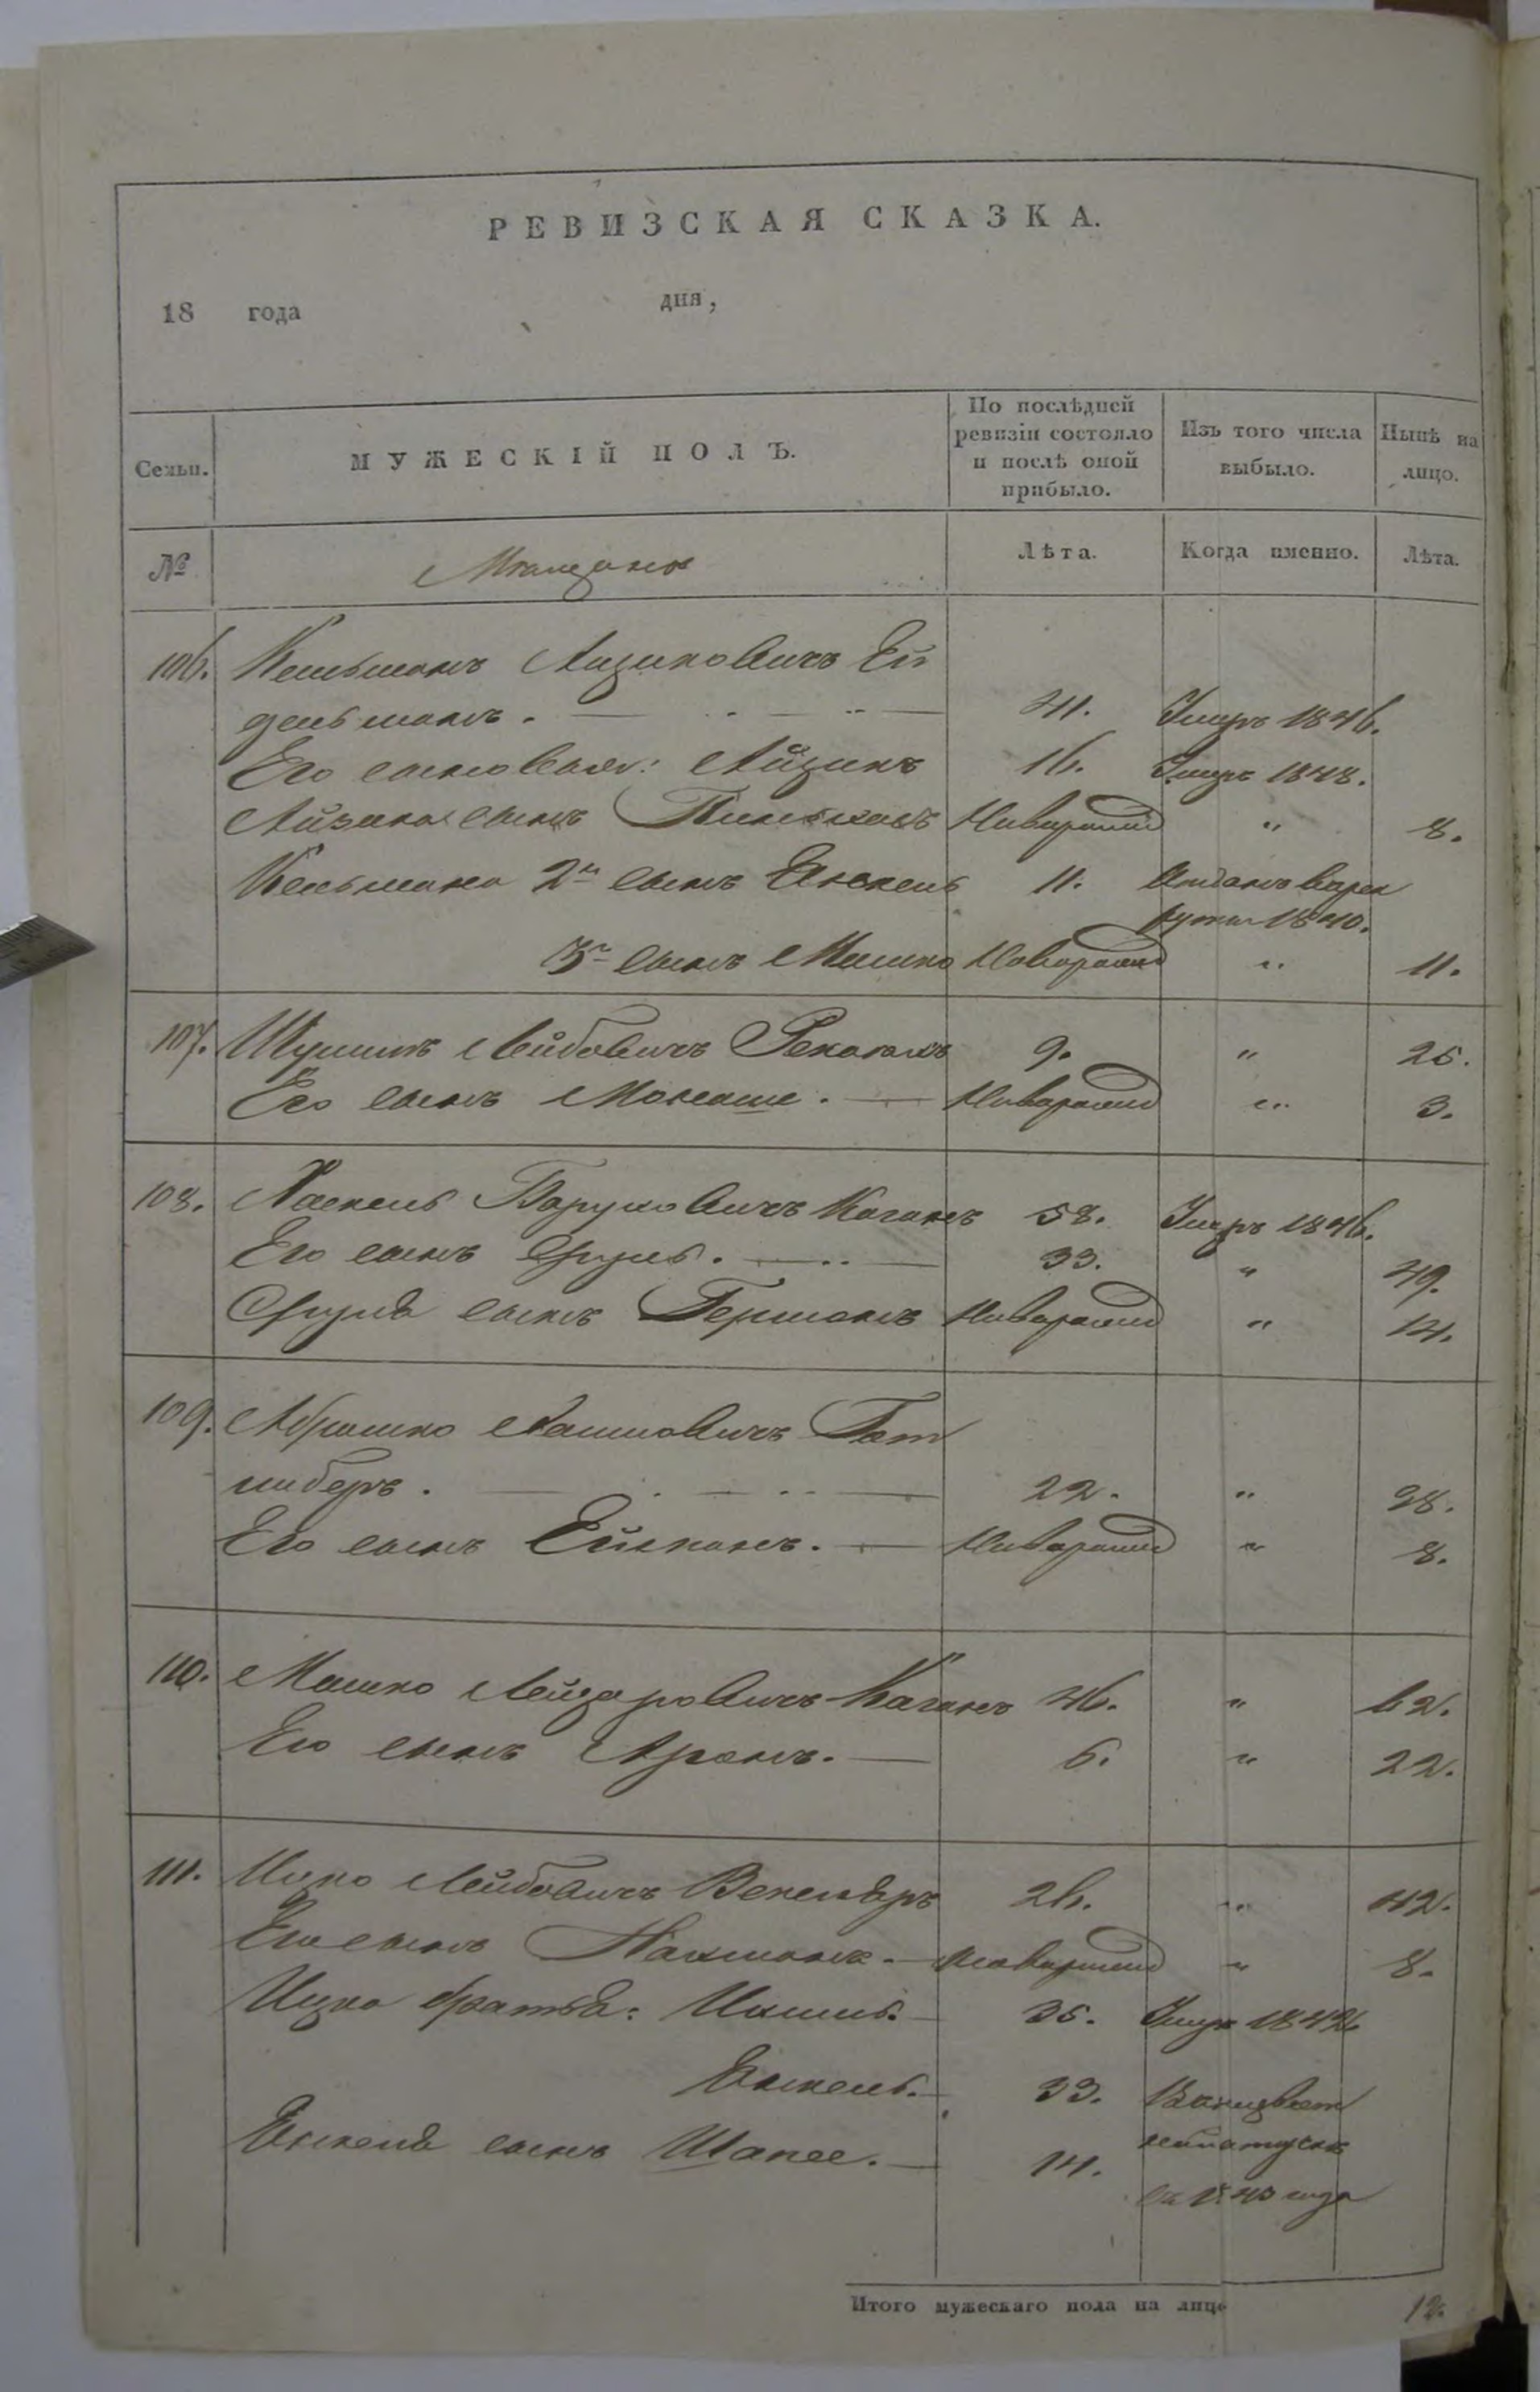 РЕВИЗСКАЯ СКАЗКА.
18 года дня,
Семьи. МУЖЕСКІЙ ПОЛЪ. По послѣдней ревизіи состояло и послѣ оной прибыло. Изъ того числа выбыло. Нынѣ на лицо.
№ Мѣщане Лѣта. Когда именно. Лѣта.
106. Кельманъ Айзиковичъ Ей
дельманъ. 41. Умеръ 1846.
Его сыновья: Айзикъ 16. Умеръ 1848.
Айзика сынъ Пинхасъ Новорожд " 8.
Кельмана 2й сынъ Янкель 11. Отданъ въ рек
руты 1840.
3й сынъ Мошко Новорожд " 11.
107. Шулимъ Лейбовичъ 9. " 25.
Его сынъ Монаше. Новорожд " 3.
108. Хаскель Боруховичъ Каганъ 58. Умеръ 1846.
Его сынъ Сруль. 33. " 49.
Сруля сынъ Гершонъ Новорожд " 14.
109. Абрамко Гот
либеръ. 22. " 38.
Его сынъ Новорожд " 8.
110. Мошко Лейзоровичъ Каганъ 46. " 62.
Его сынъ Аронъ. 6. " 22.
111. Ицко Лейбовичъ Векслеръ 26. " 42.
Его сынъ Нахманъ. Новорожд " 8.
Ицка братья: 35. Умеръ
Янкель. 33.
Янкеля сынъ Шапсе. 14.
года
Итого мужескаго пола на лицо 12.